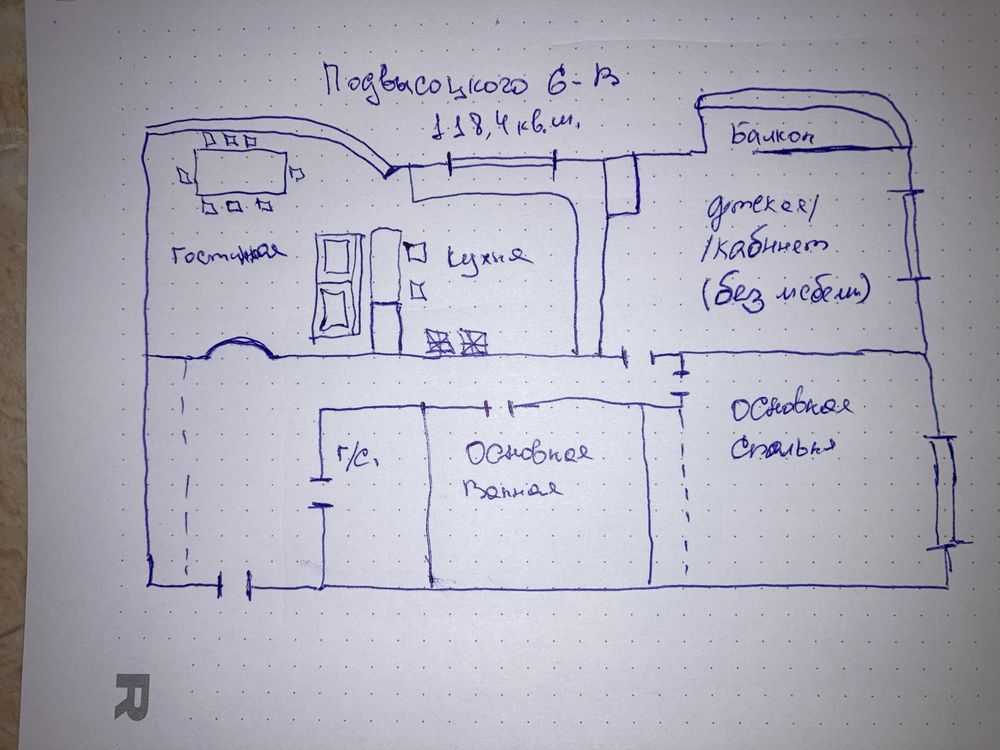 Подвысоцкого 6-В
118,4 кв.м.
Балкон
Гостинная
Кухня
детская/
/кабинет
(без мебели)
Г/С.
Основная
Ванная
Основная
Спальня
R